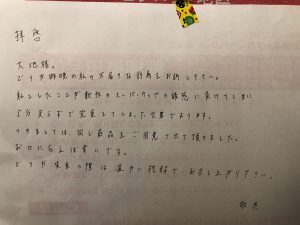 拝啓
大地様。
どうか昨晩の私の不届きな行為をお許し下さい。
私としたことが新作のスーパーカップの誘惑に負けてしまい
5分足らずで完食してしまった次第であります。
つきましては、同じ商品をご用意させて頂きました。
お口に合えば幸いです。
どうか完食の際は温かい格好で、お召し上がり下さい。
敬具